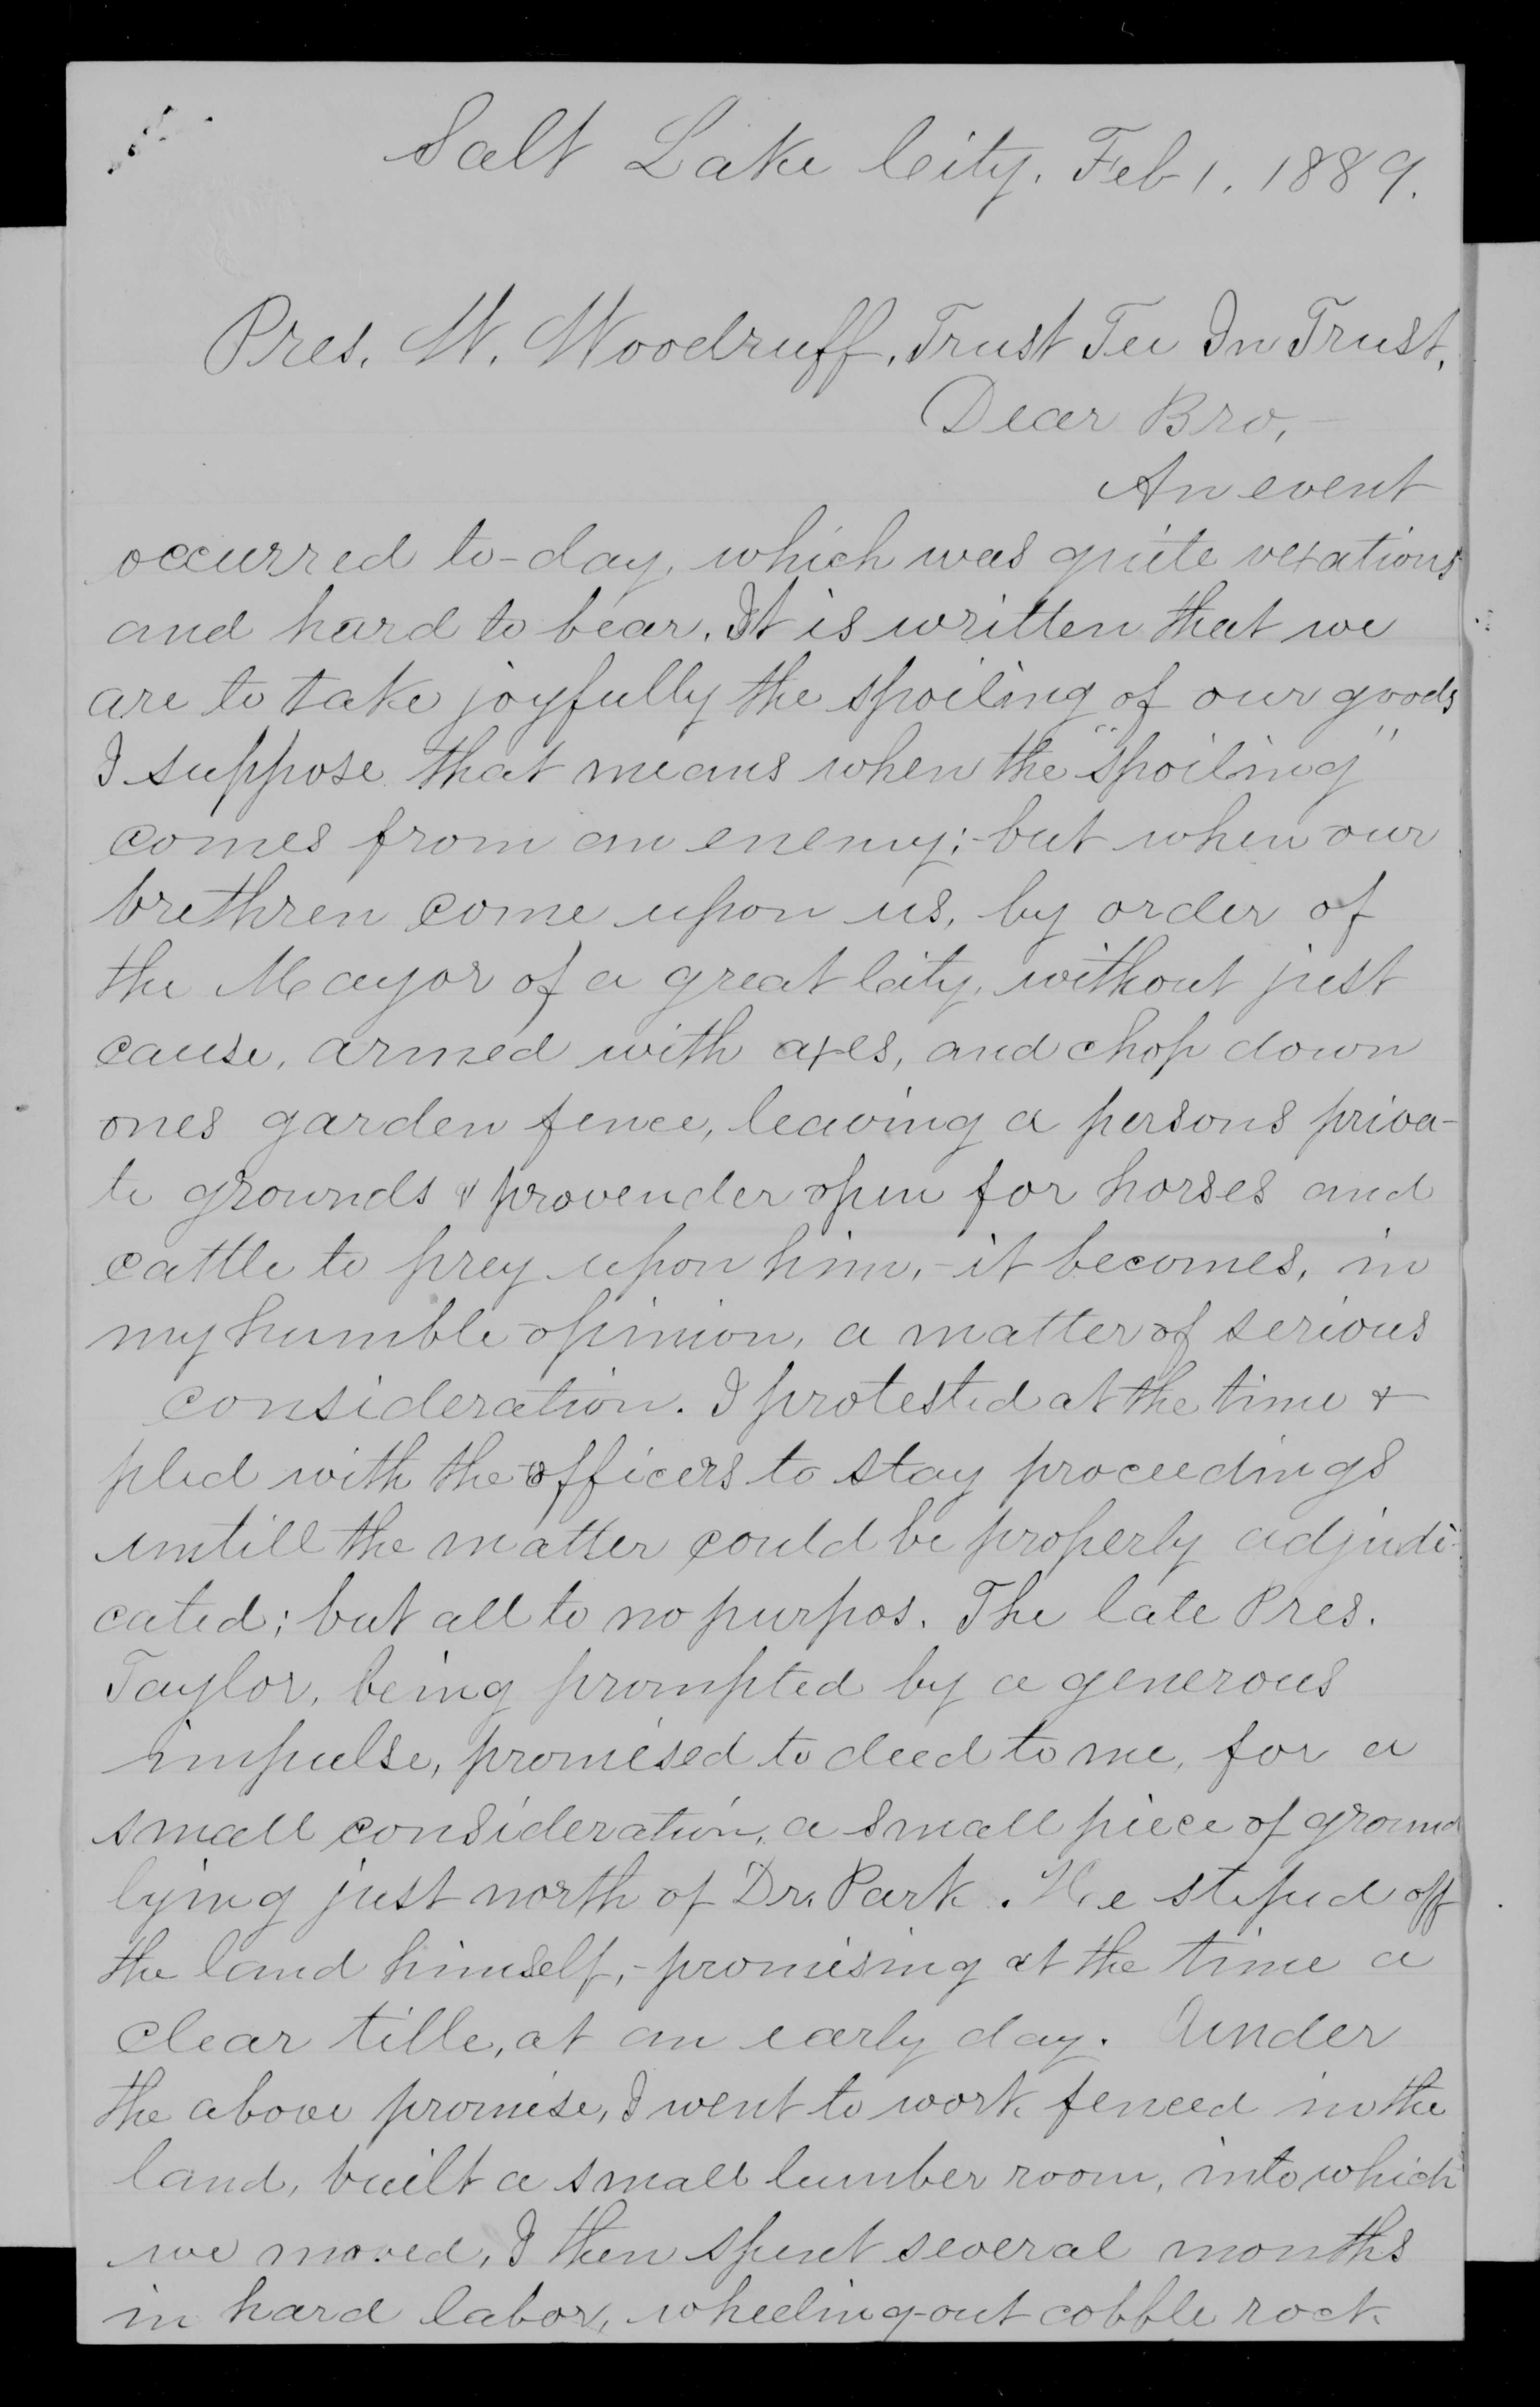 Salt Lake City. Feb 1. 1889.
Pres. W. Woodruff, Trust Tee In Trust.
Dear Bro, -
An event
occurred to-day, which was quite vexatious
and hard to bear. It is written that we
are to take joyfully the spoiling of our goods
I suppose that means when the "spoiling"
comes from an enemy; - but when our
brethren come upon us, by order of
the Mayor of a great City, without just
cause, armed with axes, and chop down
ones garden fence, leaving a persons priva-
te grounds & provender open for horses and
cattle to prey upon him, - it becomes, in
my humble opinion, a matter of serious
consideration. I protested at the time &
pled with the officers to stay proceedings
untill the matter could be properly adjudi-
cated; but all to no purpos. The late Pres.
Taylor, being prompted by a generous
impulse, promised to deed to me, for a
small consideration, a small piece of ground
lying just north of Dr. Park. He steped off
the land himself, - promising at the time a
clear title, at an early day. Under
the above promise, I went to work fenced in the
land, built a small lumber room, into which
we moved, I then spent several months
in hard labor, wheeling-out cobble rock